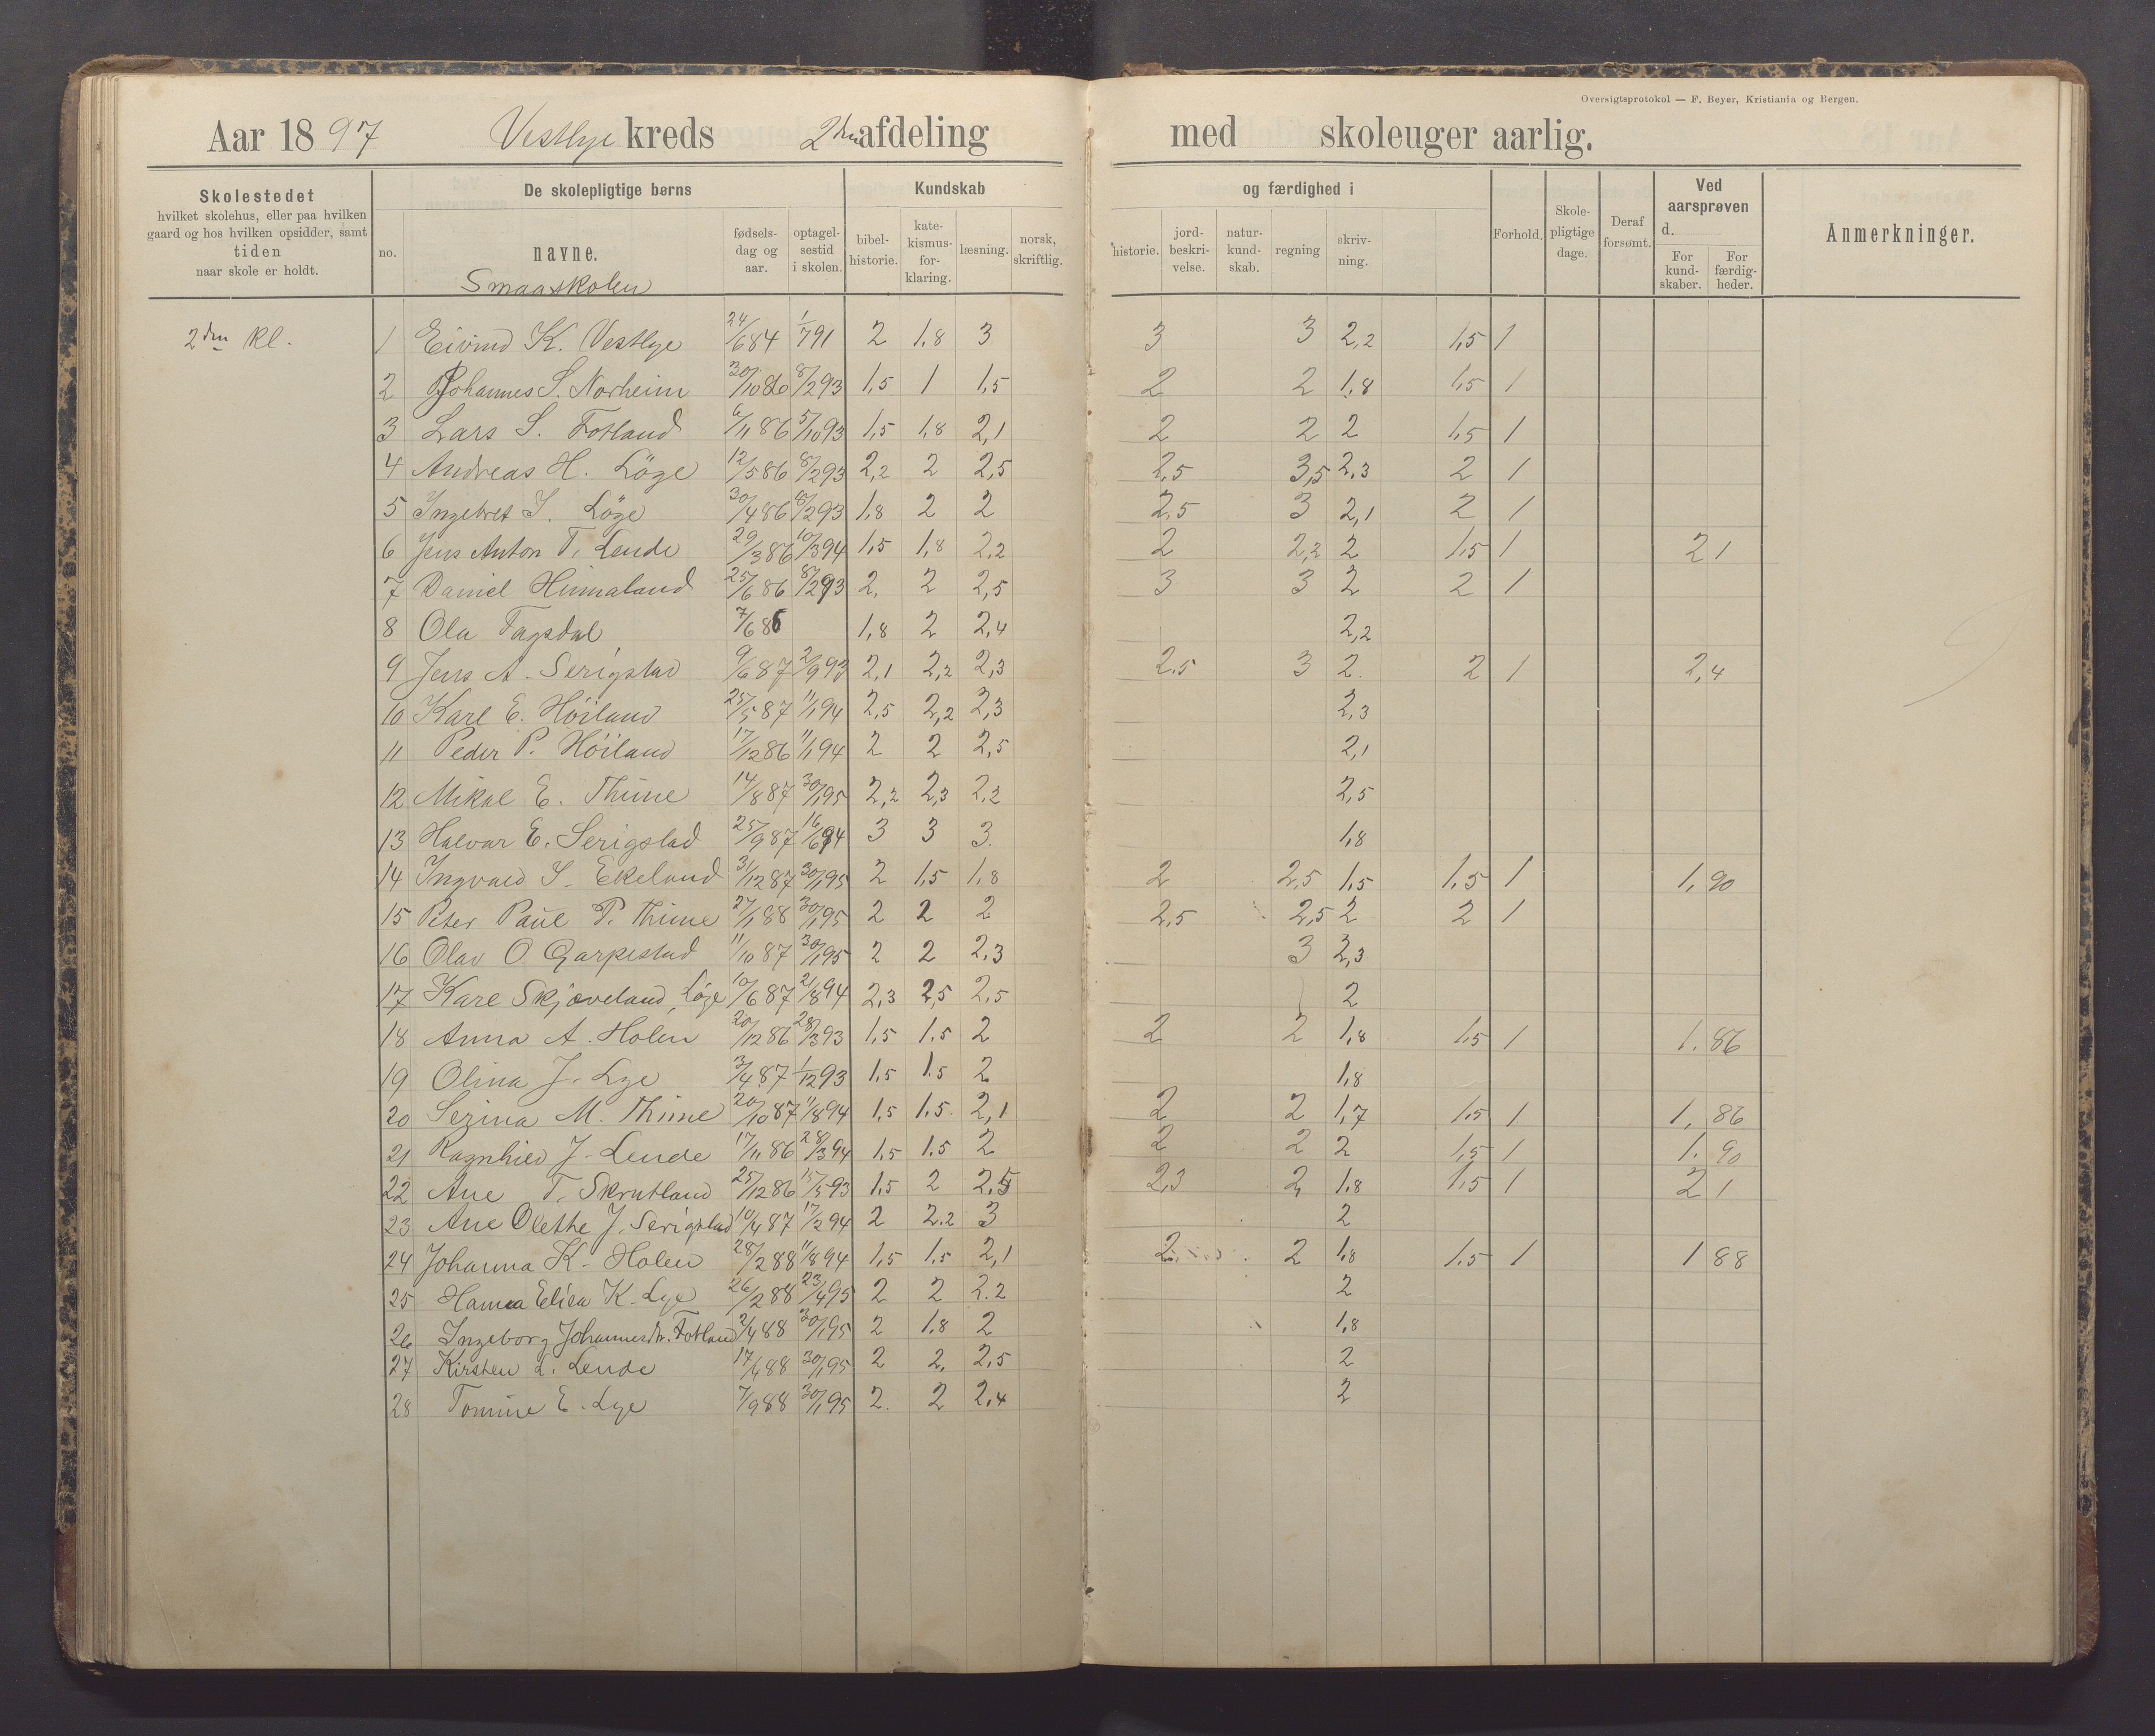 Oversigtsprotokol — F. Beyer, Kristiania og Bergen.
Aar 1897 Vestlye kreds 2den afdeling med skoleuger aarlig.
Skolestedet hvilket skolehus, eller paa hvilken gaard og hos hvilken opsidder, samt tiden naar skole er holdt.
De skolepligtige børns
no. navne. fødselsdag og aar. optagelsestid i skolen.
Kundskab og færdighed i
bibelhistorie. katekismusforklaring. læsning. norsk, skriftlig. historie. jordbeskrivelse. naturkundskab. regning skrivning.
Forhold. Skolepligtige dage. Deraf forsømt.
Ved aarsprøven d.
For kundskaber. For færdigheder.
Anmerkninger.
Smaaskolen
2den kl.
1 Eivind K. Vestlye 24/6 84 1/7 91 2 1,8 3 3 3 2,2 1,5 1
2 Johannes S. Norheim 30/10 86 8/2 93 1,5 1 1,5 2 2 1,8 1,5 1
3 Lars S. Fotland 6/11 86 5/10 93 1,5 1,8 2,1 2 2 2 1,5 1
4 Andreas H. Löge 12/5 86 8/2 93 2,2 2 2,5 2,5 3,5 2,3 2 1
5 Ingebret I. Löge 30/4 86 8/2 93 1,8 2 2 2,5 3 2,1 2 1
6 Jens Anton T. Lende 29/3 86 10/3 94 1,5 1,8 2,2 2 2,2 2 1,5 1 2 1
7 Daniel Hinnaland 25/6 86 8/2 93 2, 2 2,5 3 3 2 2 1
8 Ola Tagsdal 7/6 86 1,8 2 2,4 2,2
9 Jens A. Serigstad 9/6 87 2/9 93 2,1 2,2 2,3 2,5 3 2. 2 1 2,4
10 Karl E. Höiland 25/5 87 11/1 94 2,5 2,2 2,3 2,3
11 Peder P. Höiland 17/12 86 11/1 94 2 2 2,5 2,1
12 Mikal E. Thime 14/8 87 30/1 95 2,2 2,3 2,2 2,5
13 Halvar E. Serigstad 25/9 87 16/6 94 3 3 3. 1,8
14 Ingvald S. Ekeland 31/12 87 30/1 95 2 1,5 1,8 2 2,5 1,5 1,5 1 1,90
15 Peter Paul P. Thime 27/1 88 30/1 95 2 2 2 2,5 2,5 2 2 1
16 Olav O Garpestad 11/10 87 30/1 95 2 2 2,3 3 2,3
17 Karl Skjæveland, Löge 10/6 87 21/8 94 2,3 2,5 2,5 2
18 Anna A. Holen 20/12 86 28/3 93 1,5 1,5 2 2 2 1,8 1,5 1 1,86
19 Olina J. Lye 3/4 87 1/12 93 1,5 1,5 2 1,8
20 Serina M. Thime 20/10 87 11/8 94 1,5 1,5 2,1 2 2 1,7 1,5 1 1,86
21 Ragnhild J. Lende 17/11 86 28/3 94 1,5 1,5 2 2 2 2 1,5 1 1.90
22 Ane T. Skrutland 25/12 86 15/5 93 1,5 2 2,5 2,3 2, 1,8 1,5 1 2 1
23 Ane Olethe J. Serigstad 10/4 87 17/2 94 2 2.2 3 2
24 Johanna K. Holen 28/2 88 11/8 94 1,5 1,5 2,1 2 2 1,8 1,5 1 1 88
25 Hanna Elisa K. Lye 26/2 88 23/4 95 2 2 2.2 2
26 Ingeborg Johannesdtr. Fotland 2/4 88 30/1 95 2 1,8 2 1,8
27 Kirsten L. Lende 17/4 88 30/1 95 2 2, 2,5 2
28 Tomine E. Lye 7/9 88 30/1 95 2. 2 2,4 2